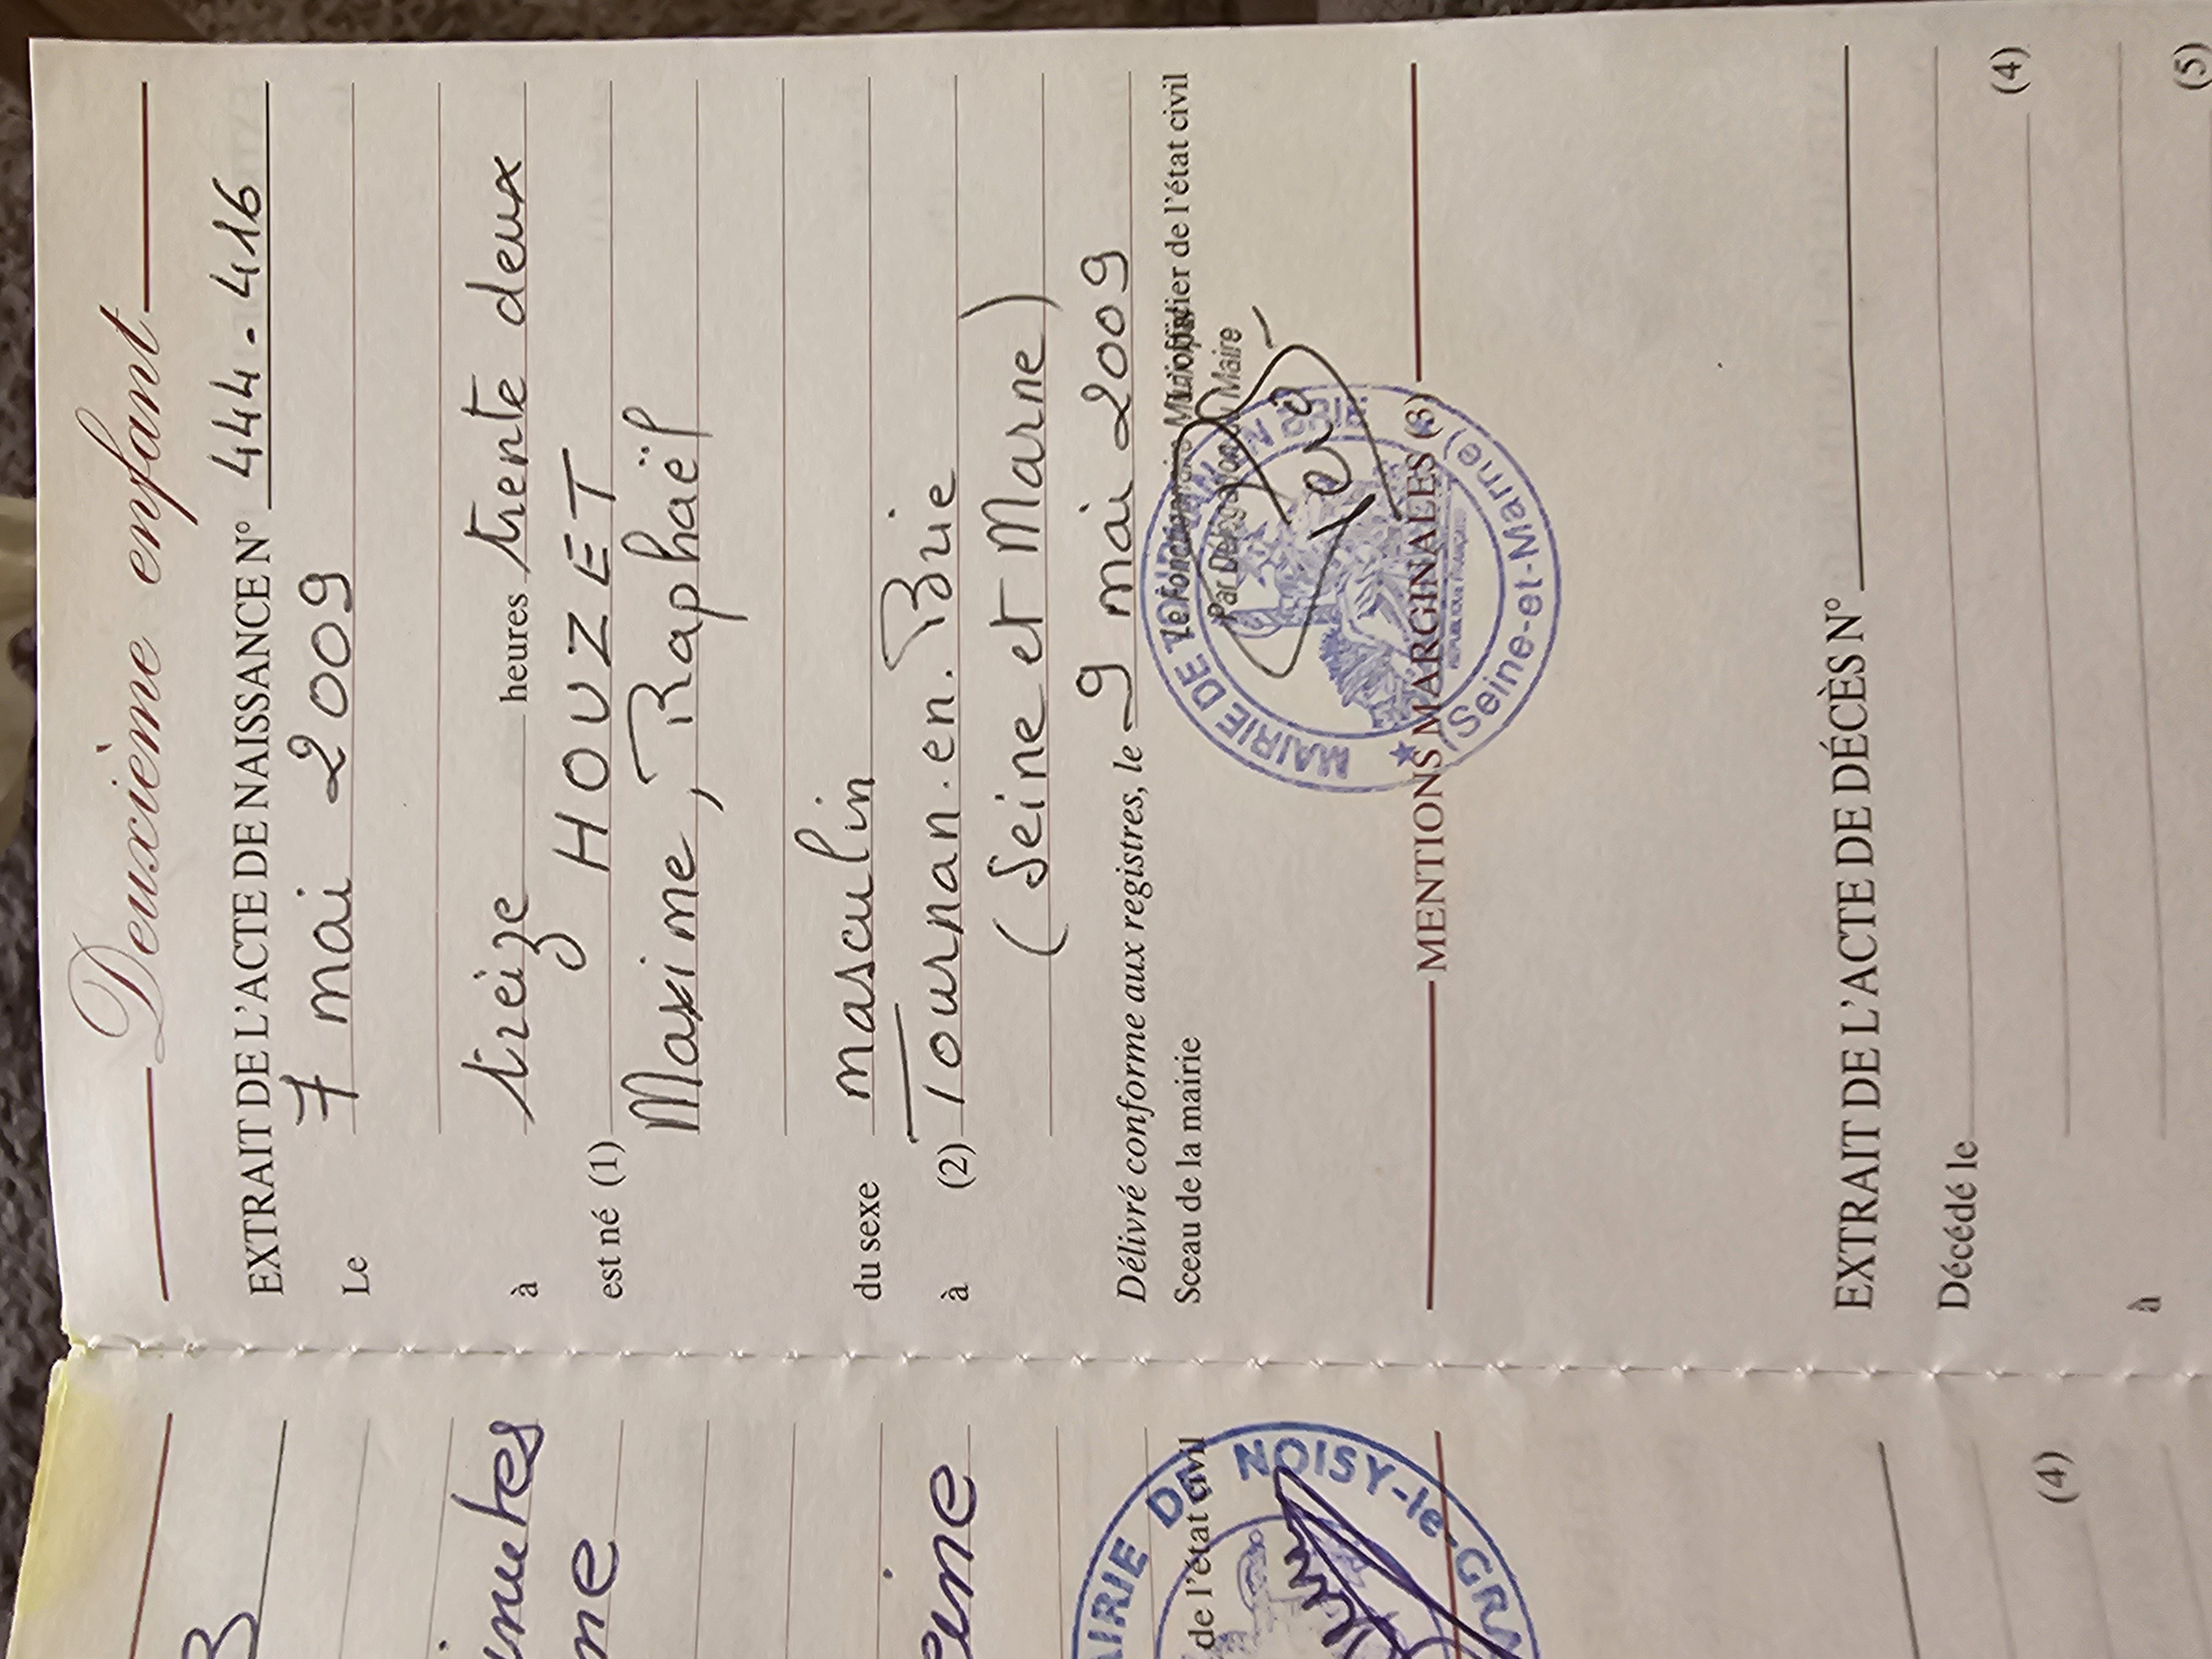 Deuxième enfant
EXTRAIT DE L'ACTE DE NAISSANCE N° 444-416
Le 7 mai 2009
à treize heures trente deux
est né (1) HOUZET
Maxime, Raphaël
du sexe masculin
à (2) Tournan.en.Brie
(Seine et Marne)
Délivré conforme aux registres, le 9 mai 2009
Sceau de la mairie
Le Fonctionnaire Municipal
officier de l'état civil
Par Délégation du Maire
MAIRIE DE TOURNAN EN BRIE
(Seine-et-Marne)
RÉPUBLIQUE FRANÇAISE
MENTIONS MARGINALES (3)
EXTRAIT DE L'ACTE DE DÉCÈS N°
Décédé le
(4)
à
(5)
de l'état civil
MAIRIE DE NOISY-le-GRA
(4)